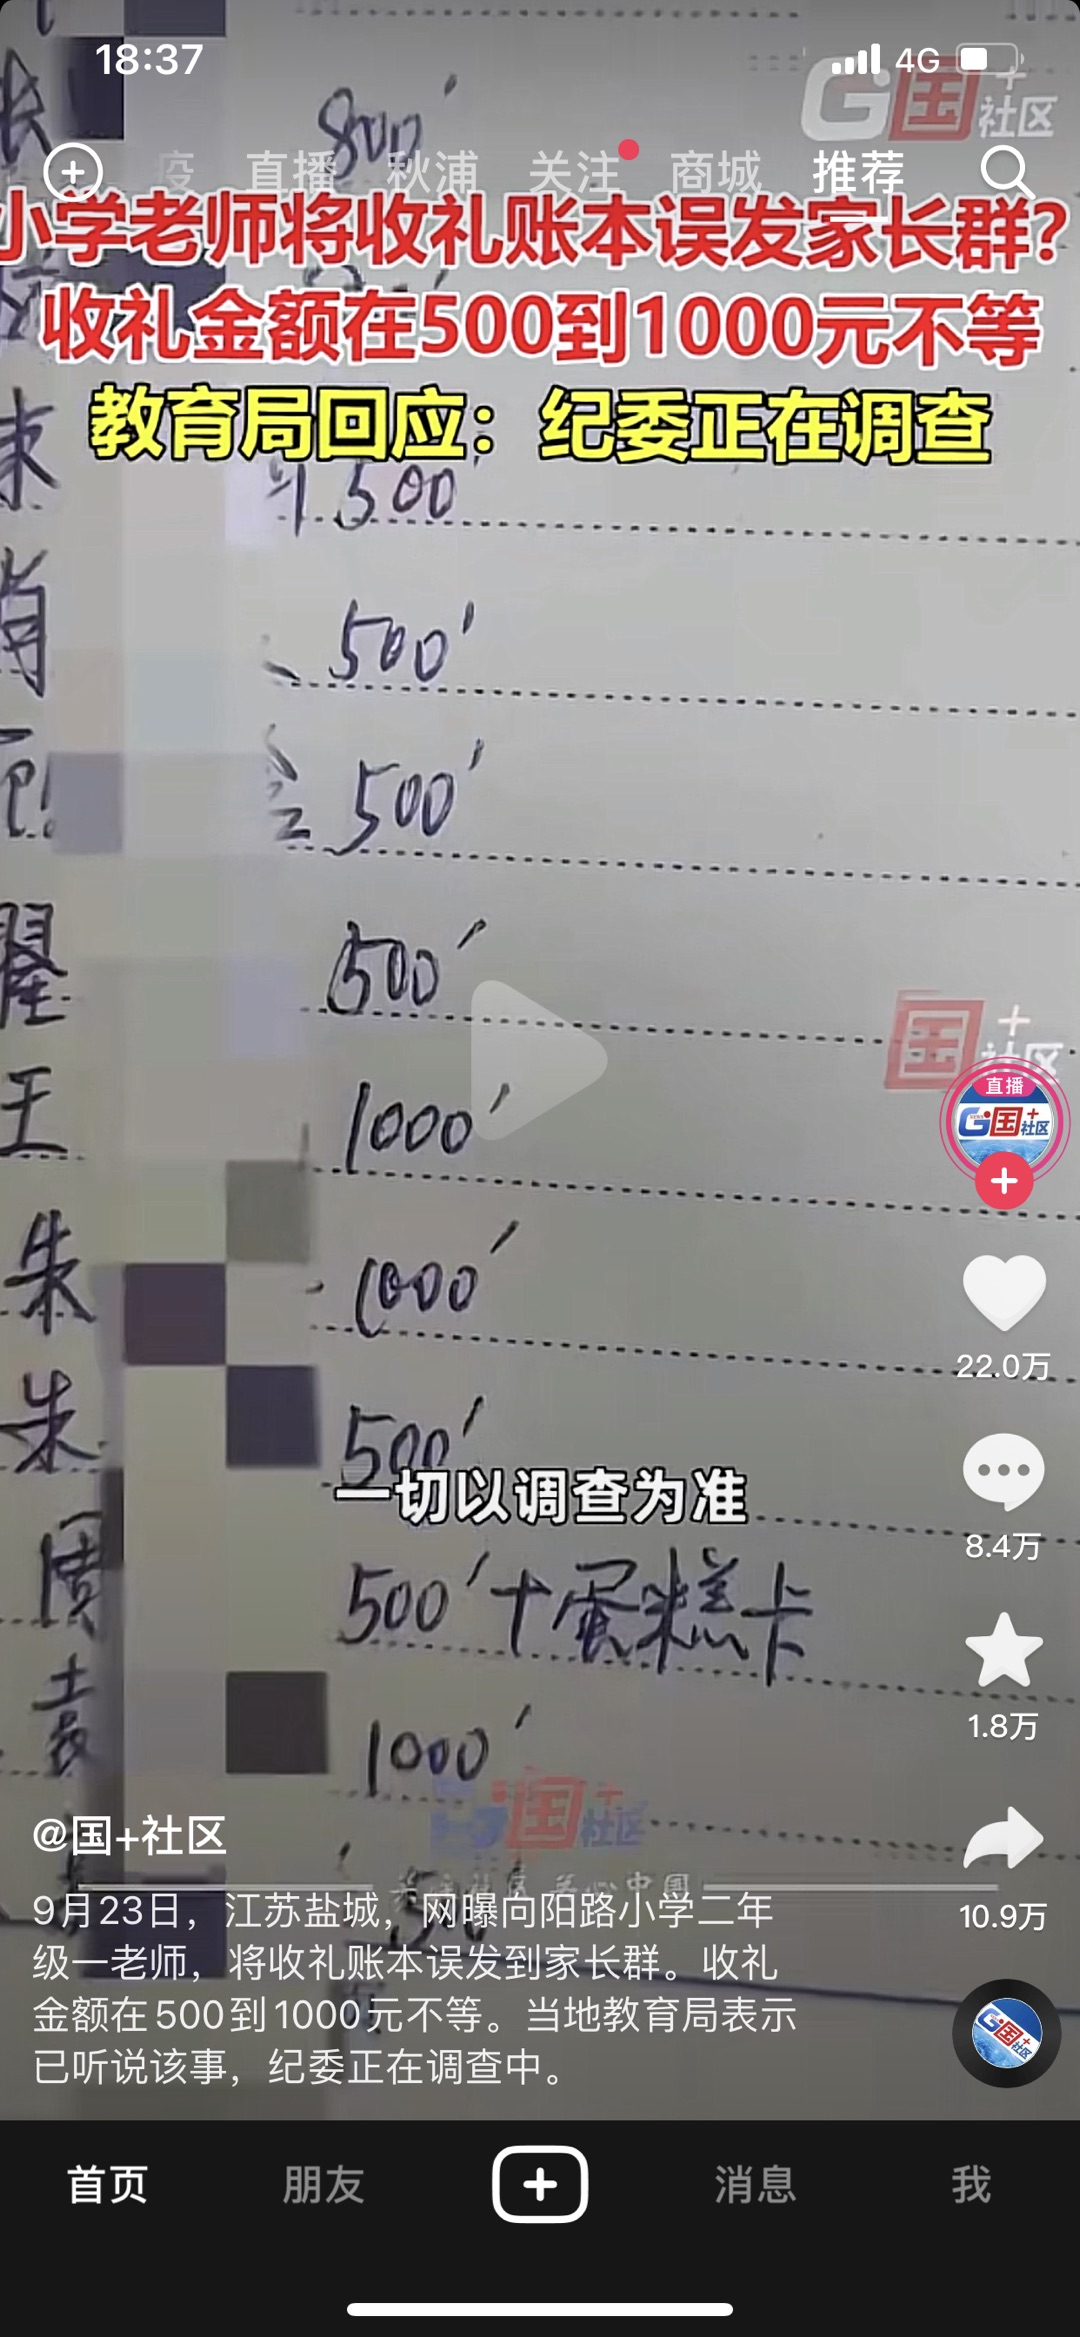 18:37
4G
G国+社区
800'
疫 直播 秋浦 关注 商城 推荐
小学老师将收礼账本误发家长群?
收礼金额在500到1000元不等
教育局回应：纪委正在调查
500'
肖 500'
500'
翟 500'
国+社区
王 1000'
直播
G国+社区
朱 1000'
22.0万
朱 500'
一切以调查为准
8.4万
周 500'+蛋糕卡
1.8万
袁 1000'
国+社区
@国+社区
9月23日，江苏盐城，网曝向阳路小学二年
级一老师，将收礼账本误发到家长群。收礼
金额在500到1000元不等。当地教育局表示
已听说该事，纪委正在调查中。
10.9万
G国+社区
首页 朋友 消息 我